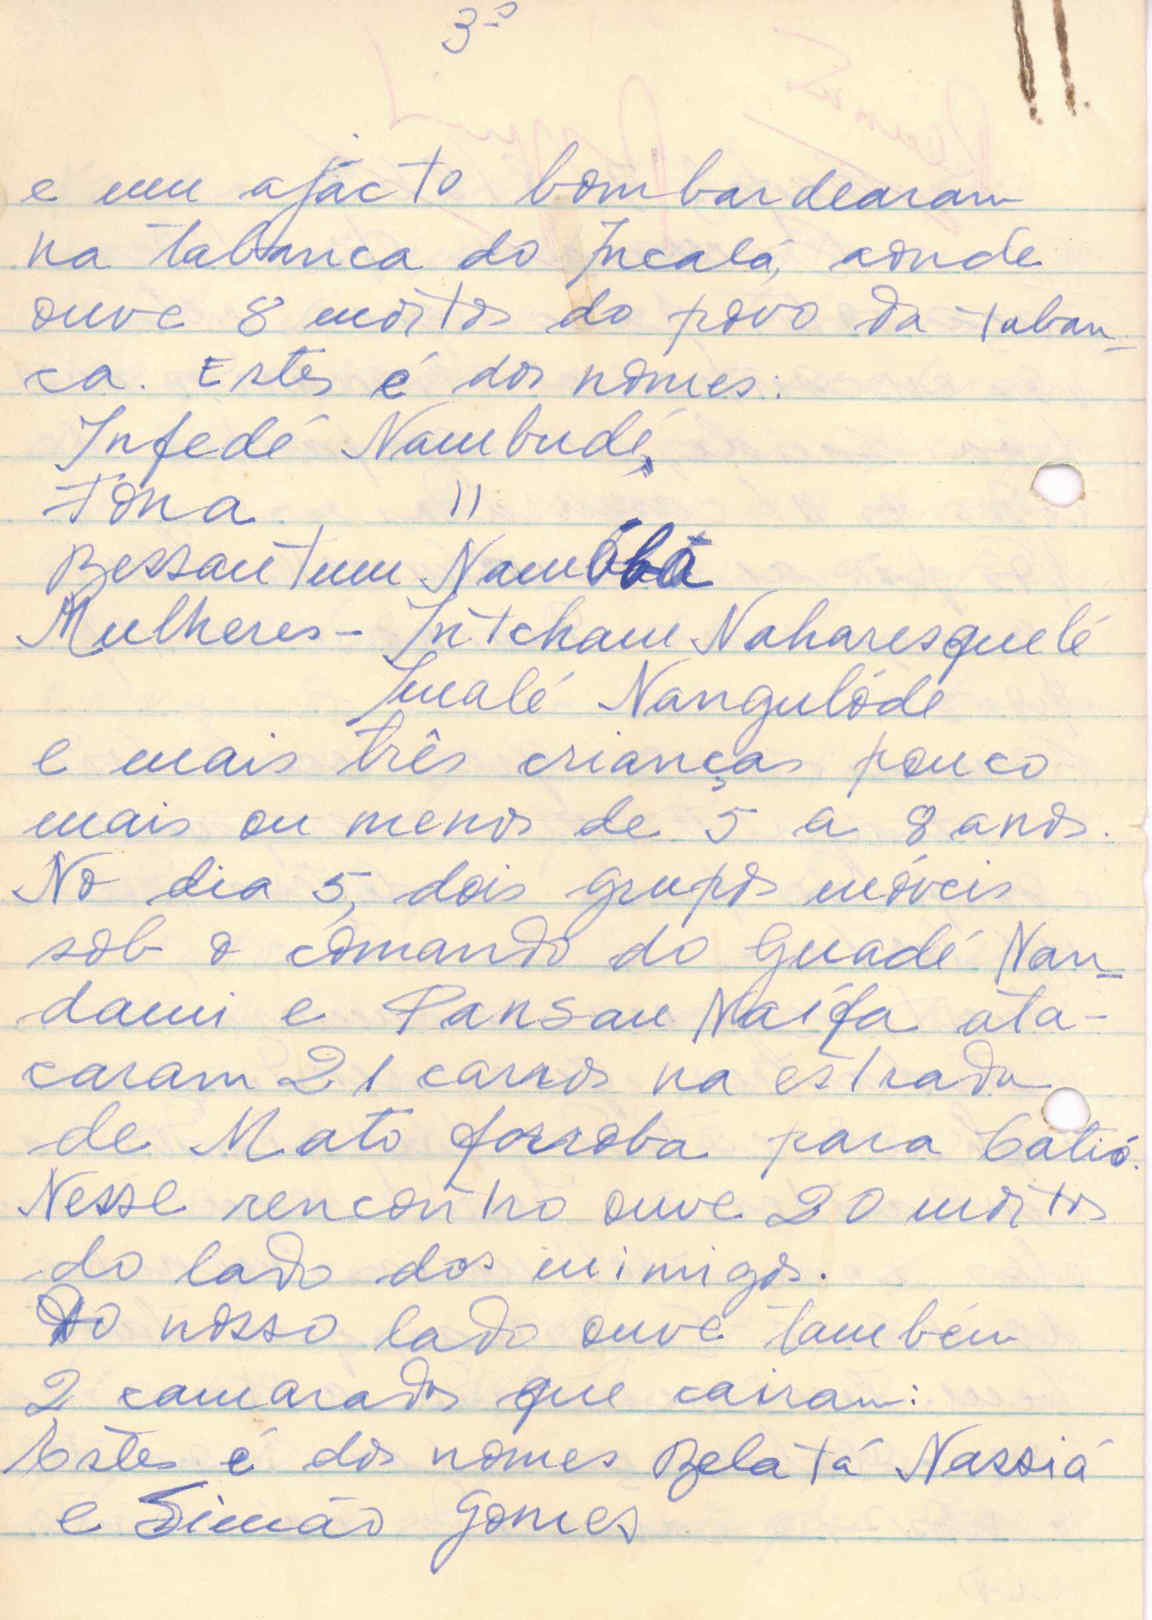 3º
e um ajácto bombardearam
na tabanca do Incalá, aonde
ouve 8 mortos do povo da taban-
ca. Estes é dos nomes:
Infedé Nambudé,
Tona "
Bessantum Namóbá
Mulheres - Intcham Naharesquelé
Inalé Nangulódé
e mais três crianças pouco
mais ou menos de 5 a 8 anos.
No dia 5, dois grupos móveis
sob o comando do Guadé Nan-
dami e Pansau Naífa ata-
caram 21 carros na estrada
de Mato forroba para Catió.
Nesse rencontro ouve 20 mortos
do lado dos inimigos.
Do nosso lado ouve também
2 camarados que cairam:
Estes é dos nomes Belatá Nassiá
e Simão Gomes